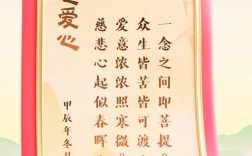 爱心
甲辰年冬
慈悲心起似春晖
爱意浓浓照寒微。
众生皆苦皆可渡，
一念之间即菩提。